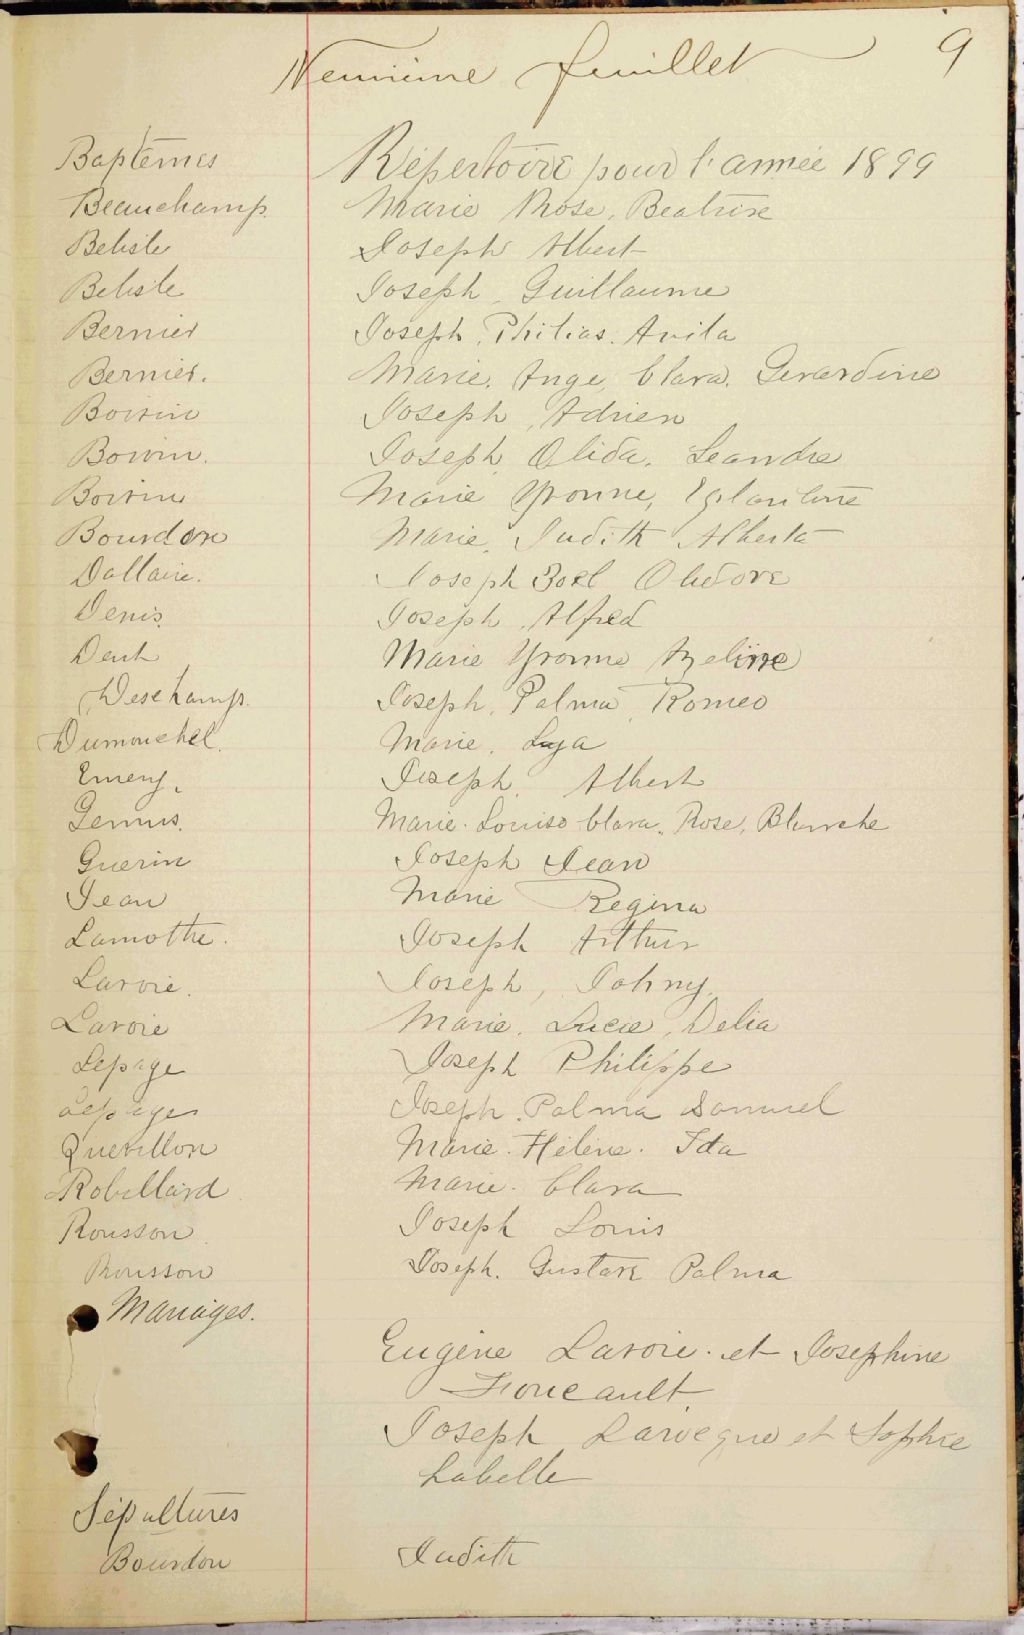 Neuvième feuillet 9
Baptêmes Répertoire pour l'année 1899
Beauchamp. Marie Rose, Beatrise
Belisle Joseph Albert
Belisle Joseph, Guillaume
Bernier Joseph, Philias. Avila
Bernier. Marie. Ange, Clara. Gerardine
Boivin Joseph, Adrien
Boivin. Joseph, Olida. Leandre
Boivin Marie Yvonne, Eglantine
Bourdon Marie, Judith Alberta
Dallaire. Joseph Zoel
Denis. Joseph, Alfred
Marie Yvonne Azeline
Deschamps. Joseph, Palma, Romeo
Dumouchel. Marie.
Emery. Joseph, Albert
Marie. Louise Clara. Rose, Blanche
Guerin Joseph Jean
Jean Marie Regina
Lamothe. Joseph Arthur
Lavoie. Joseph, Johny.
Lavoie Marie. Lucie, Delia
Lepage Joseph Philippe
Lepage Joseph. Palma Samuel
Quevillon Marie. Hélène. Ida
Robillard Marie. Clara
Rousson Joseph Louis
Rousson Joseph. Gustave Palma
Mariages.
Eugène Lavoie. et Josephine
Foucault.
Joseph et Sophie
Labelle
Sépultures
Bourdon Judith